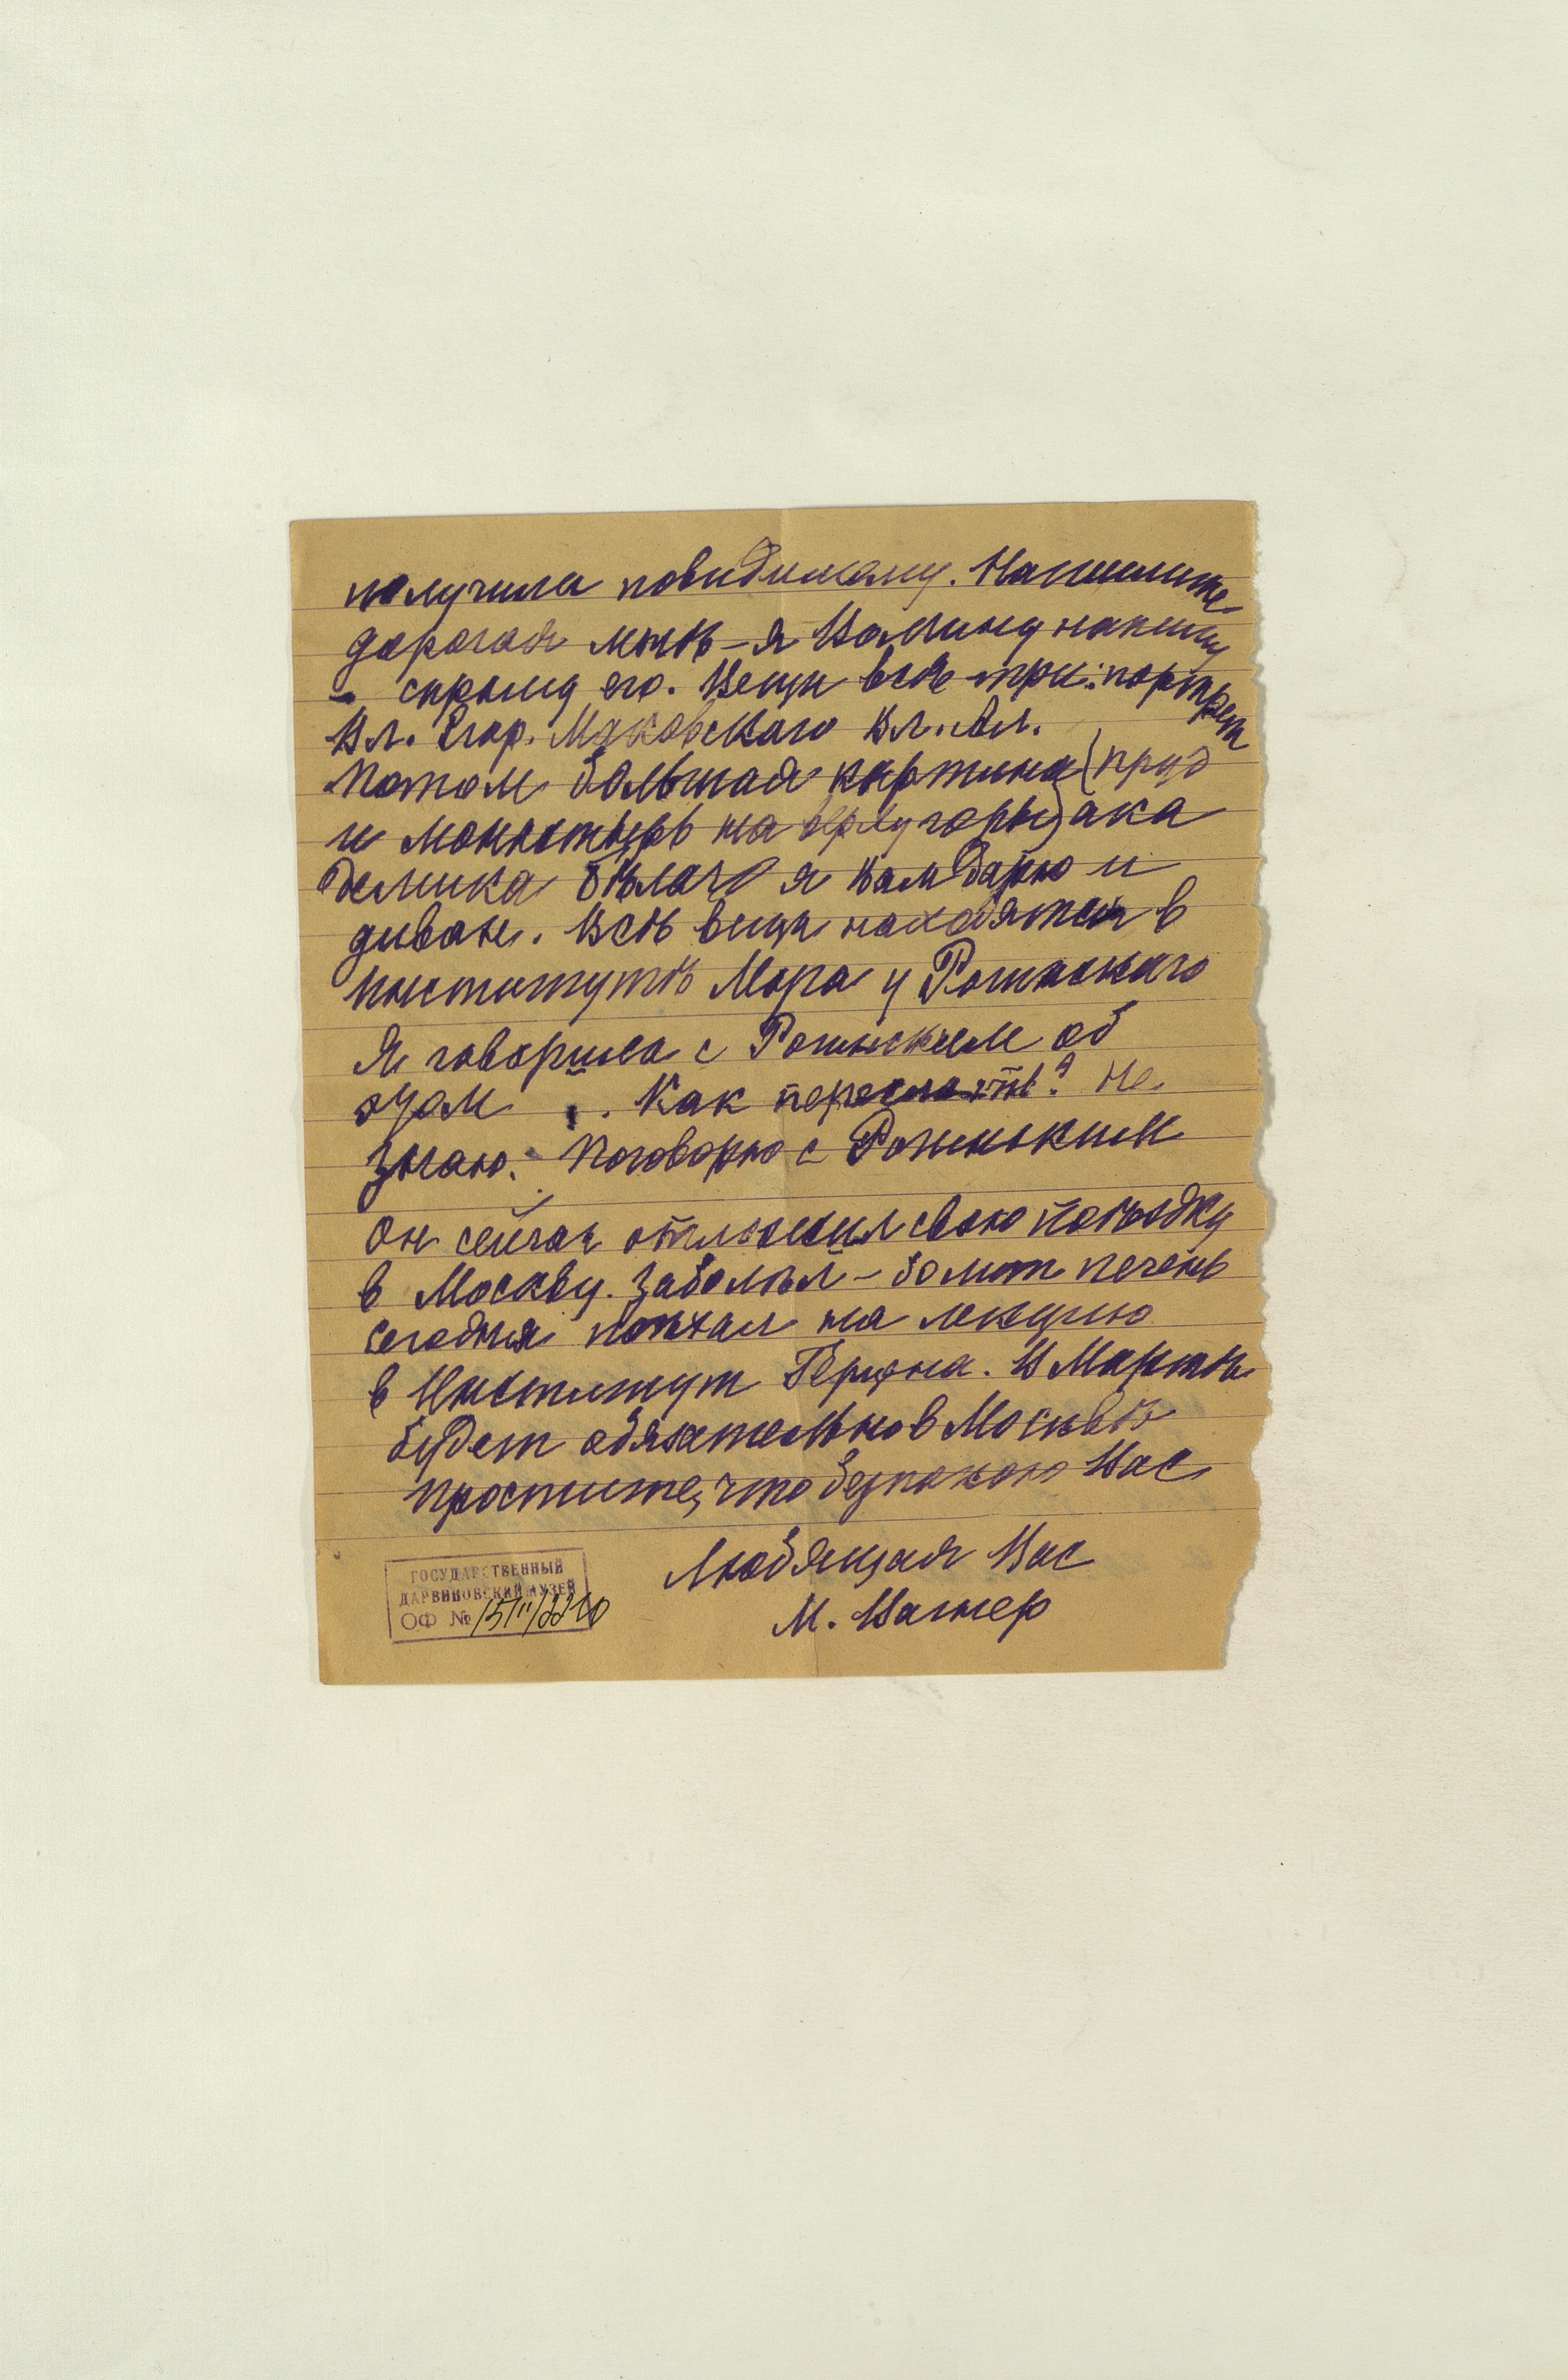 получила повидимому. Напишите
дорогая мнѣ – я Вамину напишу
– спрошу его. Вещи всѣ три: портрет
Вл. Егор. Маковскаго Вл. Ал.
Потом большая картина (пруд
и монастырь на верху горы) ака
демика Бѣлаго я Вам дарю и
диван. Всѣ вещи находятся в
институтѣ Мора у Рогинскаго
Я говорила с Рогинским об
этом . Как переслать? Не
знаю. Поговорю с Рогинским
Он сейчас отложил свою поѣздку
в Москву. Заболѣл – болит печень
сегодня поѣхал на лекцию
в Институт Герцена. В Мартѣ
будет обязательно в Москвѣ
Простите, что безпокою Вас
Любящая Вас
М. Вагнер
ГОСУДАРСТВЕННЫЙ
ДАРВИНОВСКИЙ МУЗЕЙ
ОФ №